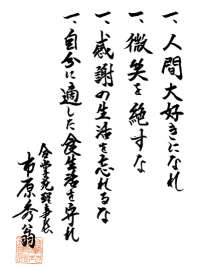 一、人間大好きになれ
一、微笑を絶すな
一、感謝の生活を忘れるな
一、自分に適した食生活を守れ
市原秀翁